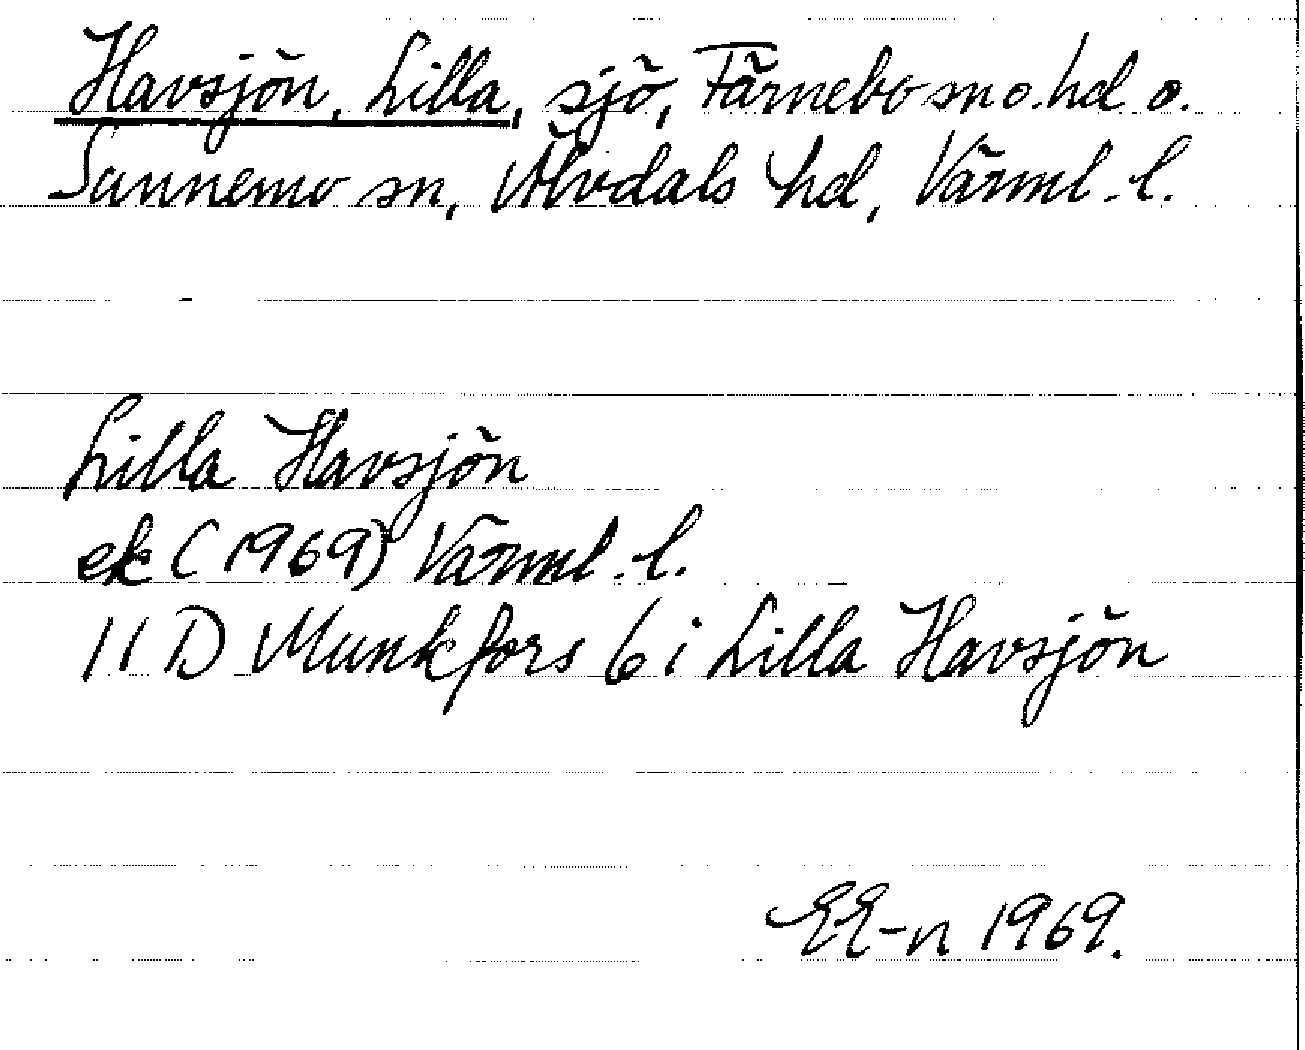 Havsjön, Lilla, sjö, Färnebo sn o. hd o.
Sunnemo sn, Älvdals hd, Värml. l.
Lilla Havsjön
ek (1969) Värml. l.
11 D Munkfors 6 i Lilla Havsjön
EE-n 1969.